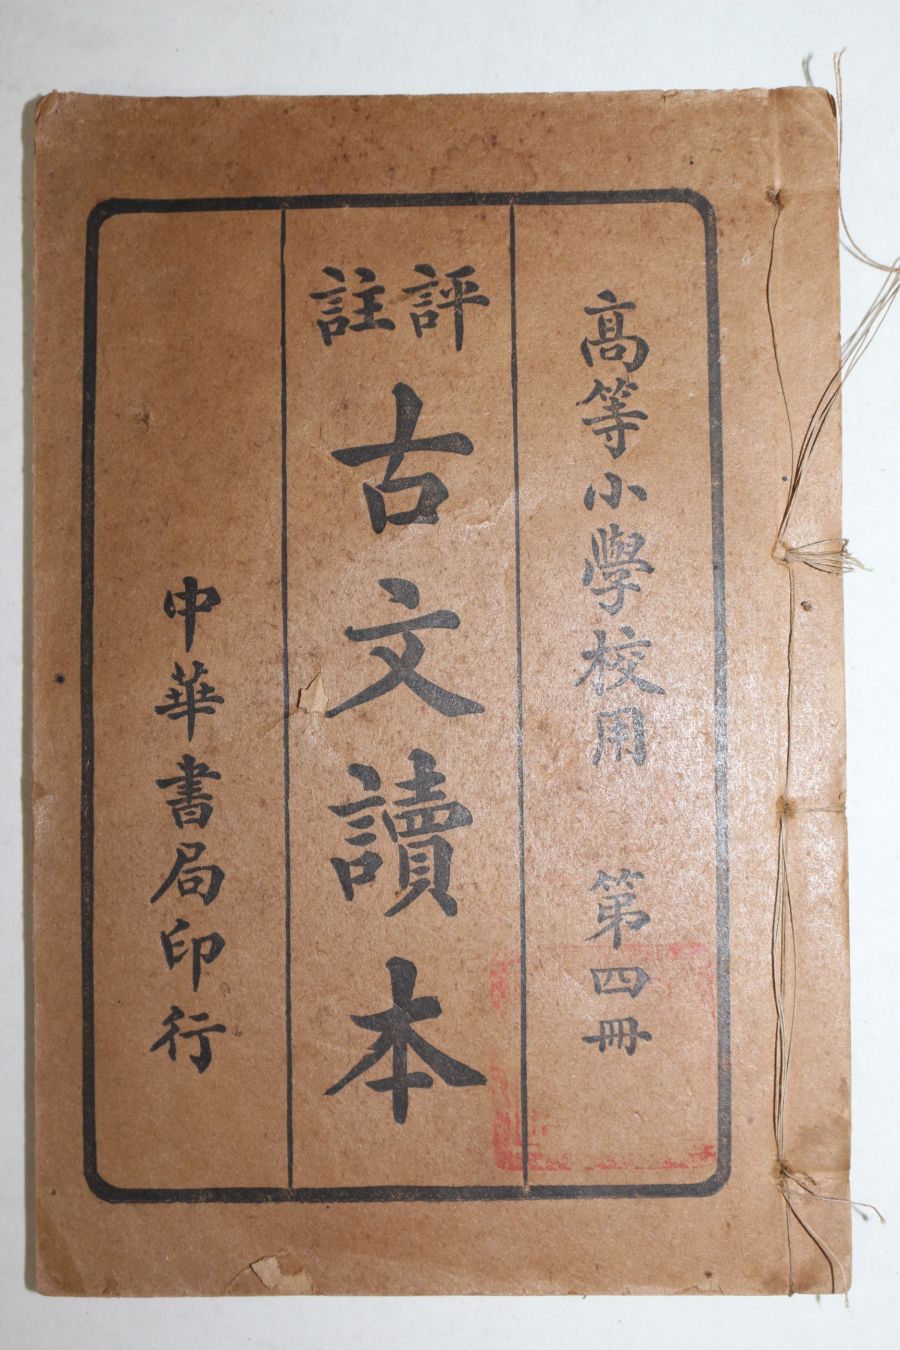 高等小學校用　第四冊
評註
古文讀本
中華書局印行